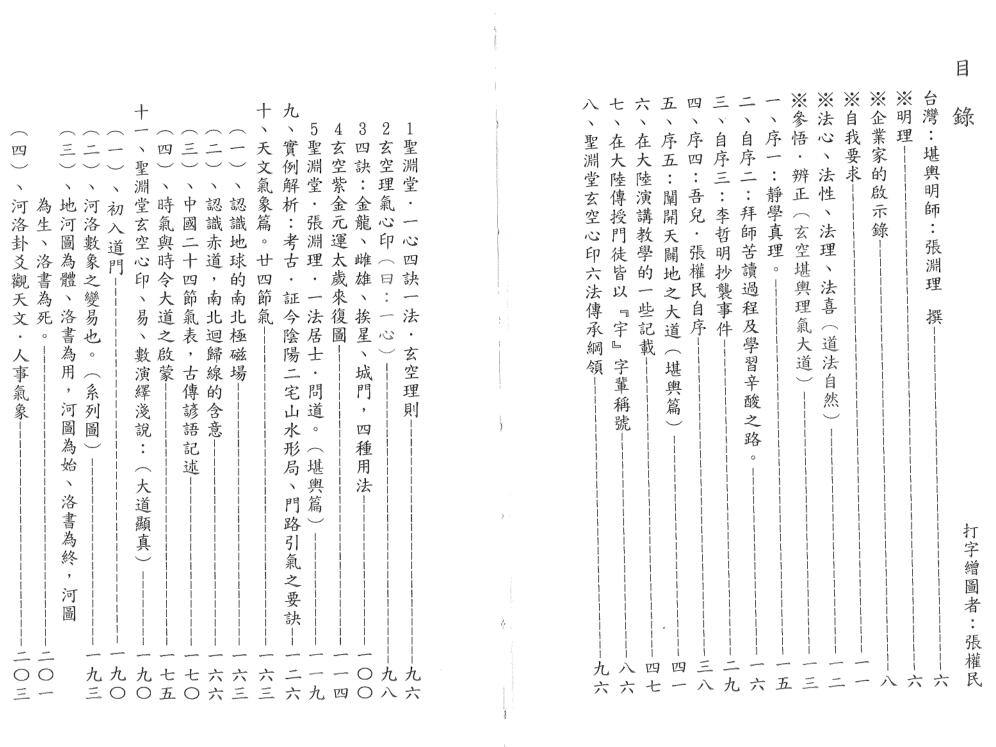 目　錄
打字繪圖者：張權民
台灣：堪輿明師：張淵理　撰------六
※明理------六
※企業家的啟示錄------八
※自我要求------一一
※法心、法性、法理、法喜（道法自然）------一二
※參悟．辨正（玄空堪輿理氣大道）------一三
一、序一：靜學真理。------一五
二、自序二：拜師苦讀過程及學習辛酸之路。------一六
三、自序三：李哲明抄襲事件------二九
四、序四：吾兒．張權民自序------三八
五、序五：闡開天闢地之大道（堪輿篇）------四一
六、在大陸演講教學的一些記載------四七
七、在大陸傳授門徒皆以『宇』字輩稱號------八六
八、聖淵堂玄空心印六法傳承綱領------九六
1聖淵堂．一心四訣一法．玄空理則------九六
2玄空理氣心印（曰：一心）------九八
3四訣：金龍、雌雄、挨星、城門，四種用法------一〇〇
4玄空紫金元運太歲來復圖------一一四
5聖淵堂．張淵理．一法居士．問道。（堪輿篇）------一一九
九、實例解析：考古．証今陰陽二宅山水形局、門路引氣之要訣------一二六
十、天文氣象篇。廿四節氣------一六三
（一）、認識地球的南北極磁場------一六三
（二）、認識赤道，南北迴歸線的含意------一六六
（三）、中國二十四節氣表，古傳諺語記述------一七〇
（四）、時氣與時令大道之啟蒙------一七五
十一、聖淵堂玄空心印、易、數演繹淺說：（大道顯真）------一九〇
（一）、初入道門------一九〇
（二）、河洛數象之變易也。（系列圖）------一九三
（三）、地河圖為體、洛書為用，河圖為始、洛書為終，河圖
為生、洛書為死。------二〇一
（四）、河洛卦爻觀天文．人事氣象------二〇三